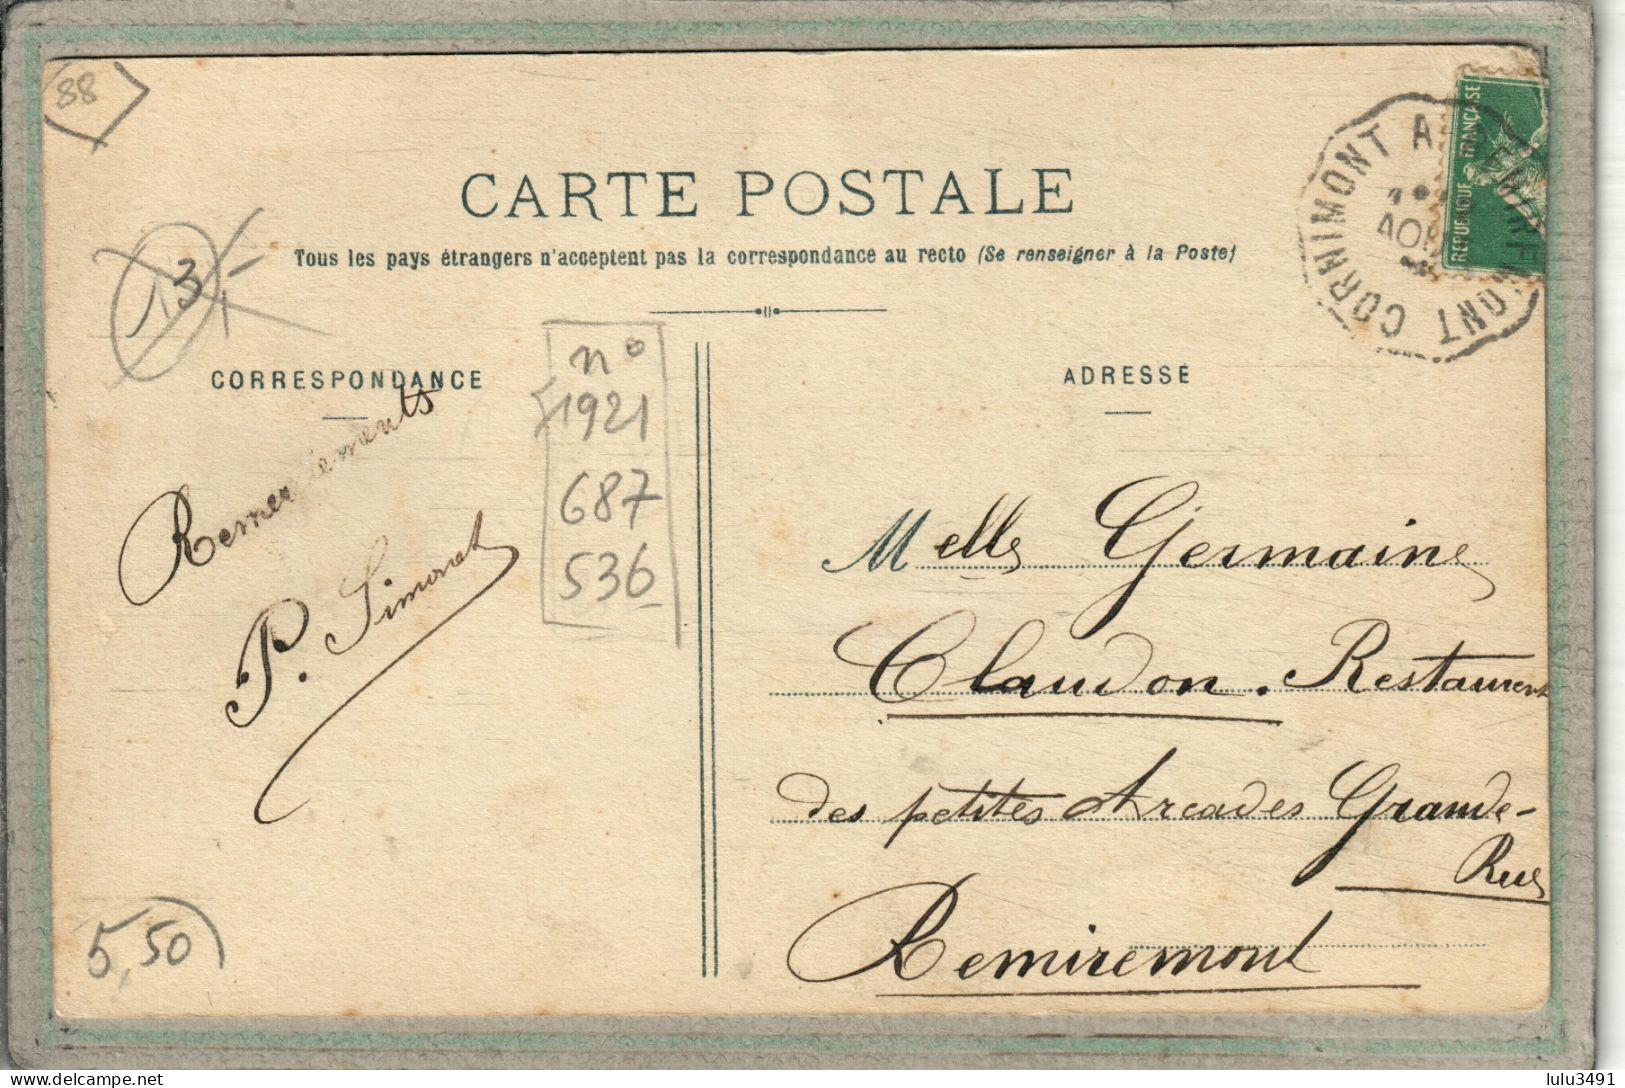 88
CARTE POSTALE
Tous les pays étrangers n'acceptent pas la correspondance au recto (Se renseigner à la Poste)
13
CORRESPONDANCE
Remerciements
P. Simonet
n°
1921
687
536
5,50
ADRESSE
Melle Germaine
Claudon. Restaurant
des petites Arcades Grande-
Rue
Remiremont
CORNIMONT A REMIREMONT
AOU
REPUBLIQUE FRANÇAISE
lulu3491